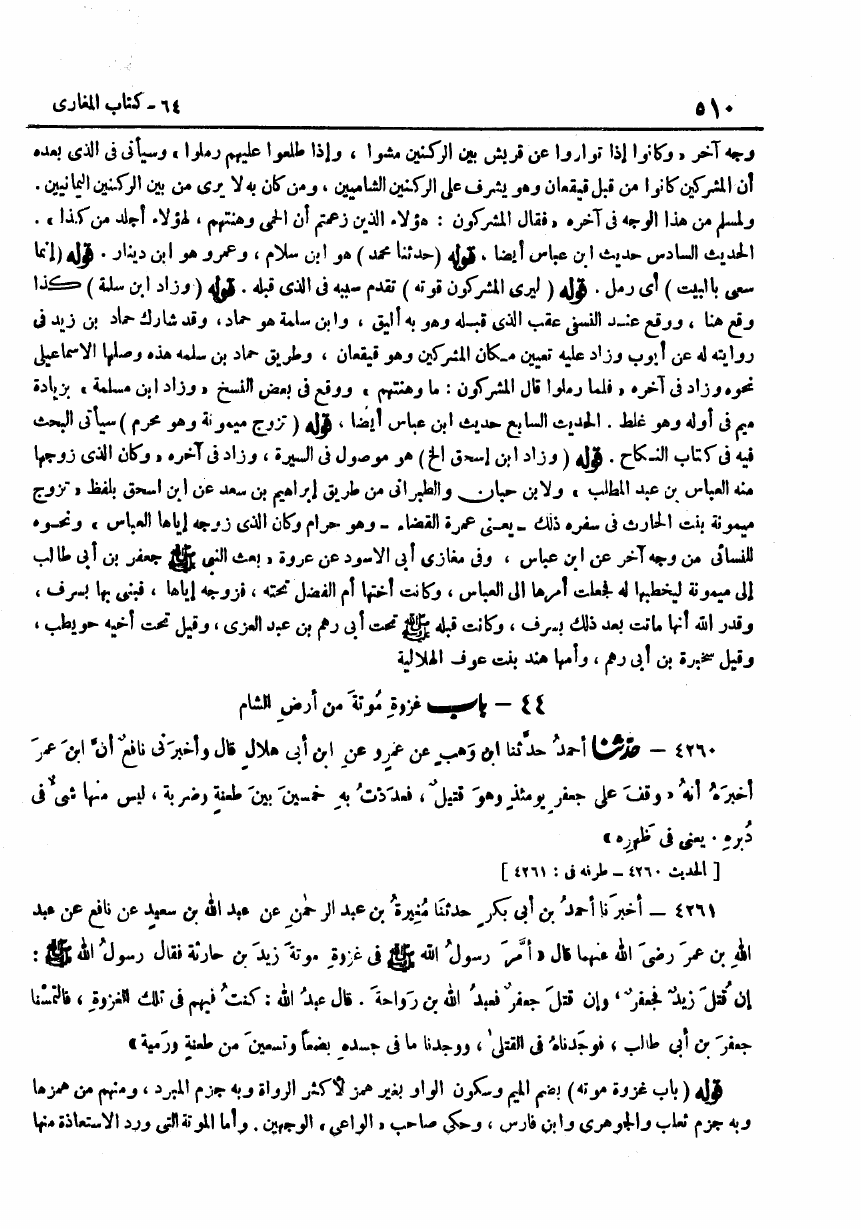 ٥١٠
٦٤ - كتاب المغازى
وجه آخر « وكانوا إذا تواروا عن قريش بين الركنين مشوا ، وإذا طلعوا عليهم رملوا » وسيأتى فى الذى بعده
أن المشركين كانوا من قبل قيقعان وهو يشرف على الركنين الشاميين ، ومن كان به لا يرى من بين الركنين اليمانيين .
ولمسلم من هذا الوجه فى آخره « فقال المشركون : هؤلاء الذين زعمتم أن الحمى وهنتهم ، لهؤلاء أجلد من كذا » .
الحديث السادس حديث ابن عباس أيضا ، قوله ( حدثنا محمد ) هو ابن سلام ، وعمرو هو ابن دينار . قوله ( إنما
سعى بالبيت ) أى رمل . قوله ( ليرى المشركون قوته ) تقدم سببه فى الذى قبله . قوله ( وزاد ابن سلمة ) كذا
وقع هنا ، ووقع عند النسفى عقب الذى قبله وهو به أليق ، وابن سلمة هو حماد ، وقد شارك حماد بن زيد فى
روايته له عن أيوب وزاد عليه تعيين مكان المشركين وهو قيقعان ، وطريق حماد بن سلمه هذه وصلها الاسماعيلى
نحوه وزاد فى آخره « فلما رملوا قال المشركون : ما وهنتهم » ووقع فى بعض النسخ « وزاد ابن مسلمة » بزيادة
ميم فى أوله وهو غلط . الحديث السابع حديث ابن عباس أيضا ، قوله ( تزوج ميمونة وهو محرم ) سيأتى البحث
فيه فى كتاب النكاح . قوله ( وزاد ابن إسحق الخ ) هو موصول فى السيرة ، وزاد فى آخره « وكان الذى زوجها
منه العباس بن عبد المطلب » ولابن حبان والطبرانى من طريق إبراهيم بن سعد عن ابن اسحق بلفظ « تزوج
ميمونة بنت الحارث فى سفره ذلك - يعنى عمرة القضاء - وهو حرام وكان الذى زوجه إياها العباس » ونحوه
للنسائى من وجه آخر عن ابن عباس ، وفى مغازى أبى الاسود عن عروة « بعث النبى ﷺ جعفر بن أبى طالب
إلى ميمونة ليخطبها له فجعلت أمرها الى العباس ، وكانت أختها أم الفضل تحته ، فزوجه إياها ، فبنى بها بسرف ،
وقدر الله أنها ماتت بعد ذلك بسرف ، وكانت قبله ﷺ تحت أبى رهم بن عبد العزى ، وقيل تحت أخيه حويطب ،
وقيل سخبرة بن أبى رهم ، وأمها هند بنت عوف الهلالية
٤٤ - باب غزوةِ مُوتةَ من أرضِ الشام
٤٢٦٠ - حدثنا أحمدُ حدَّثنا ابن وَهبٍ عن عمرٍو عنِ ابن أبى هلالٍ قال وأخبرَنى نافعٌ أنَّ ابنَ عمرَ
أخبرَهُ أنهُ « وقفَ على جعفرٍ يومئذٍ وهوَ قتيلٌ ، فعدَدْتُ بهِ خمسينَ بينَ طعنةٍ وضربة ، ليس منها شىءٌ فى
دُبرهِ . يعنى فى ظهرِه »
[ الحديث ٤٢٦٠ - طرفه فى : ٤٢٦١ ]
٤٢٦١ - أخبرَنا أحمدُ بن أبى بكرٍ حدثنَا مُغيرةُ بن عبد الرحمٰنِ عن عبد الله بن سعيدٍ عن نافعٍ عن عبد
اللهِ بن عمرَ رضىَ الله عنهما قال « أمَّرَ رسولُ الله ﷺ فى غزوةِ موتةَ زيدَ بن حارثة فقال رسولُ الله ﷺ :
إن قُتلَ زيدٌ فجعفرٌ ، وإن قتلَ جعفرٌ فعبدُ الله بن رَواحةَ . قال عبدُ الله : كنتُ فيهم فى تلك الغزوةِ ، فالتمسْنا
جعفرَ بن أبى طالب ، فوجَدناهُ فى القتلىٰ ، ووجدنا ما فى جسدهِ بضعاً وتسعينَ من طعنةٍ ورَمية »
قوله ( باب غزوة موته ) بضم الميم وسكون الواو بغير همز لأكثر الرواة وبه جزم المبرد ، ومنهم من همزها
وبه جزم ثعلب والجوهرى وابن فارس ، وحكى صاحب « الواعى » الوجهين . وأما الموتة التى ورد الاستعاذة منها